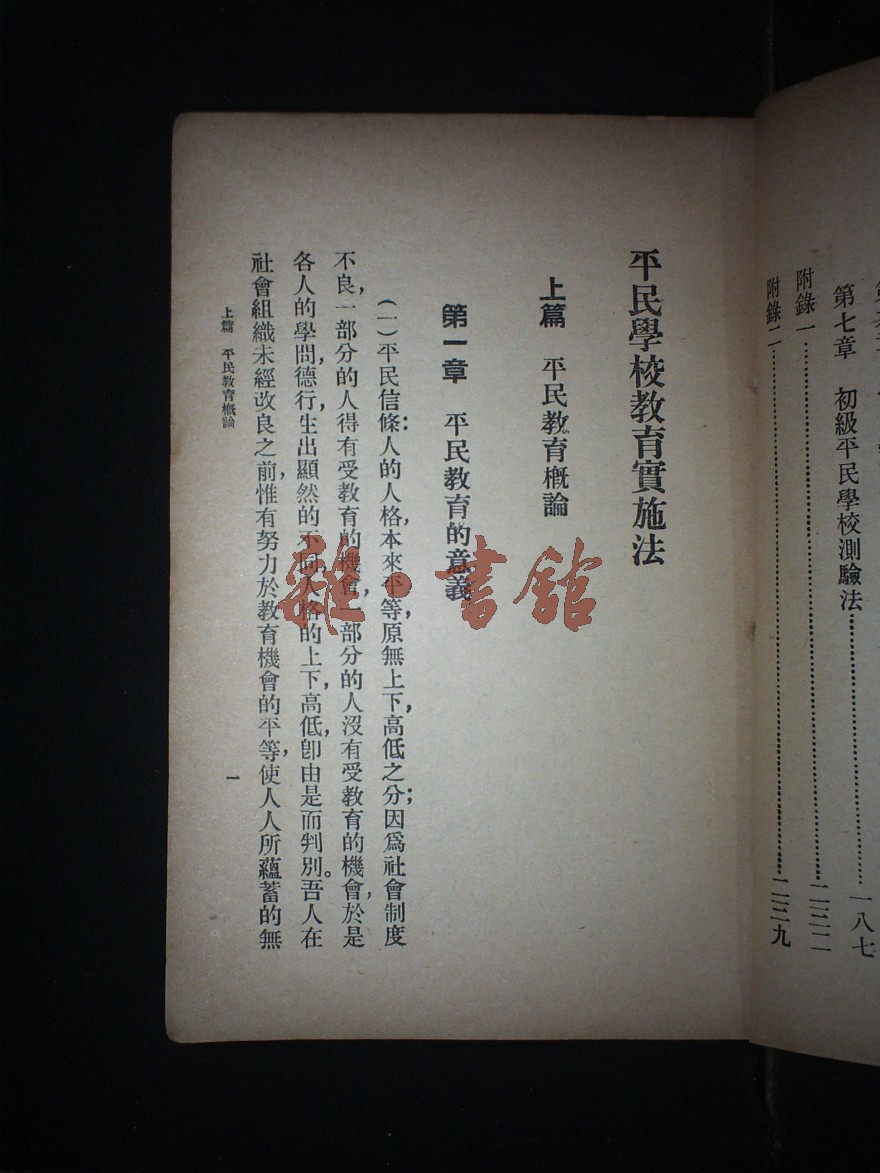 第七章　初級平民學校測驗法……一八七
附錄一……
附錄二……二二九
平民學校教育實施法
上篇　平民教育概論
第一章　平民教育的意義
(一)平民信條:人的人格本來平等,原無上下,高低之分;因爲社會制度
不良,一部分的人得有受教育的機會,一部分的人沒有受教育的機會,於是
各人的學問德行,生出顯然的不同,人格的上下,高低,卽由是而判別。吾人在
社會組織未經改良之前,惟有努力於教育機會的平等,使人人所蘊蓄的無
上篇　平民教育概論　一
雜·書館